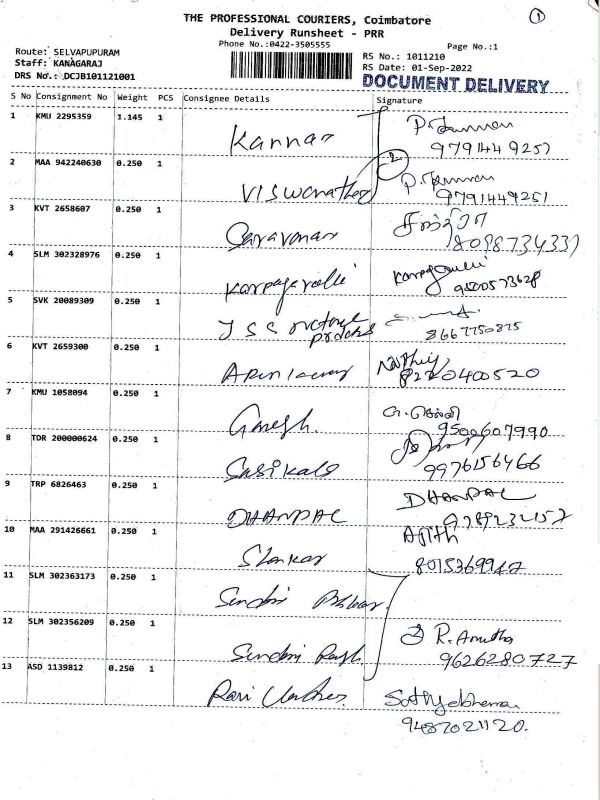 1
THE PROFESSIONAL COURIERS, Coimbatore
Delivery Runsheet - PRR
Phone No.:0422-3505555
Page No.:1
Route: SELVAPUPURAM
Staff: KANAGARAJ
DRS No.: DCJB101121001
RS No.: 1011210
RS Date: 01-Sep-2022
DOCUMENT DELIVERY
S No Consignment No Weight PCS Consignee Details Signature
1 KMU 2295359 1.145 1
Kannan
9791449257
2 MAA 942240630 0.250 1
2
Viswanathan
9791449251
3 KVT 2658607 0.250 1
Saravanan
8098734337
4 SLM 302328976 0.250 1
Karpagavalli
9500573628
5 SVK 20089309 0.250 1
JSS
8667750875
6 KVT 2659300 0.250 1
8220400520
7 KMU 1058094 0.250 1
Ganesh.
9500607990
8 TDR 200000624 0.250 1
Sasikala
9976156466
9 TRP 6826463 0.250 1
DHANPAL
DHANPAL
9789232157
10 MAA 291426661 0.250 1
Shankar
Ajith
8015369947
11 SLM 302363173 0.250 1
12 SLM 302356209 0.250 1
R. Anutha
9626280727
13 ASD 1139812 0.250 1
Ravi
9487021120.